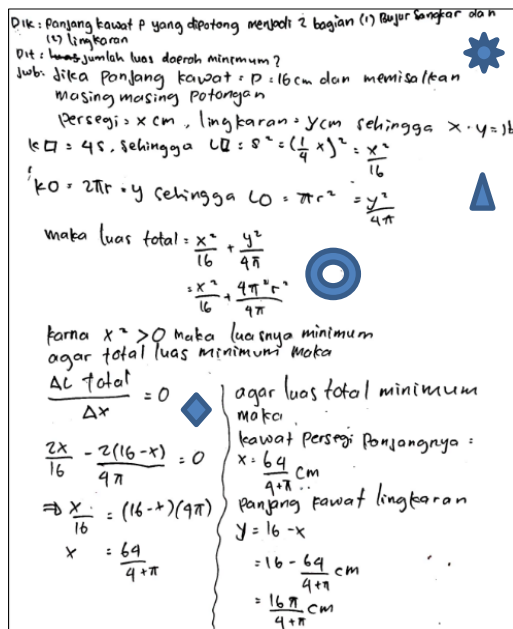 Dik: Panjang kawat P yang dipotong menjadi 2 bagian (1) Bujur Sangkar dan
(2) lingkaran
Dit: jumlah luas daerah minimum?
Jwb: Jika Panjang kawat = P = 16 cm dan memisalkan
masing masing potongan
Persegi = x cm, lingkaran = y cm sehingga x · y = 16
k□ = 4s, sehingga L□ = s² = (1/4 x)² = x²/16
kO = 2πr · y sehingga LO = πr² = y²/4π
maka luas total = x²/16 + y²/4π
= x²/16 + 4π²r²/4π
karna x² > 0 maka luasnya minimum
agar total luas minimum maka
ΔL total/Δx = 0
2x/16 - 2(16-x)/4π = 0
⇒ x/16 = (16-x)(4π)
x = 64/4+π
agar luas total minimum
maka
kawat persegi panjangnya =
x = 64/4+π cm
Panjang kawat lingkaran
y = 16 - x
= 16 - 64/4+π cm
= 16π/4+π cm